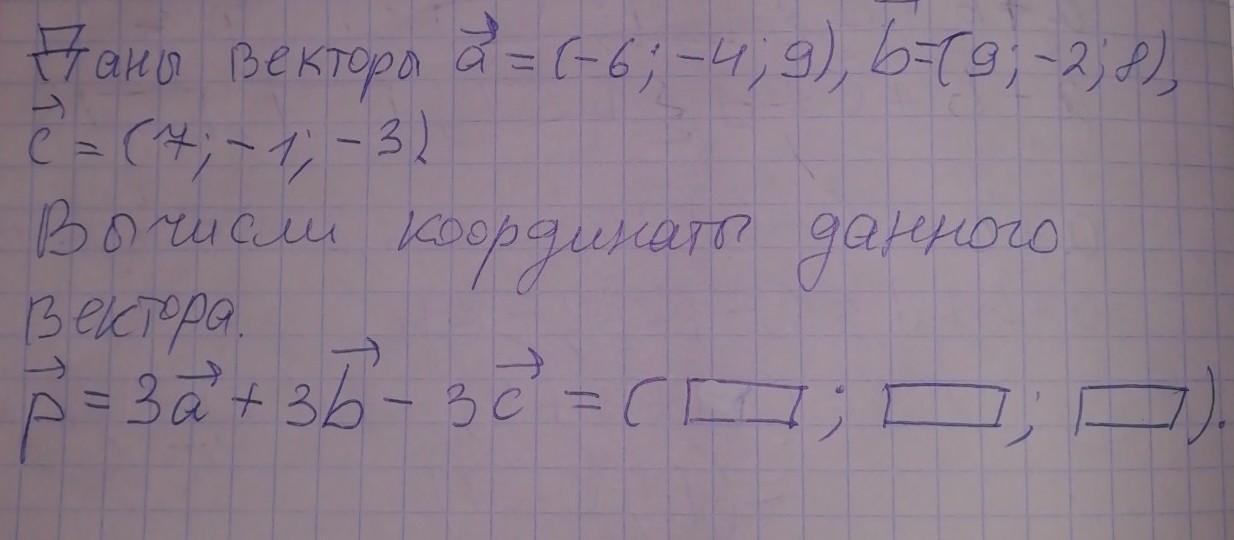 Даны векторы a⃗ = (-6; -4; 9), b⃗=(9; -2; 8),
c⃗ = (7; -1; -3)
Вычисли координаты данного
вектора.
p⃗ = 3a⃗ + 3b⃗ - 3c⃗ = ( ; ; ).